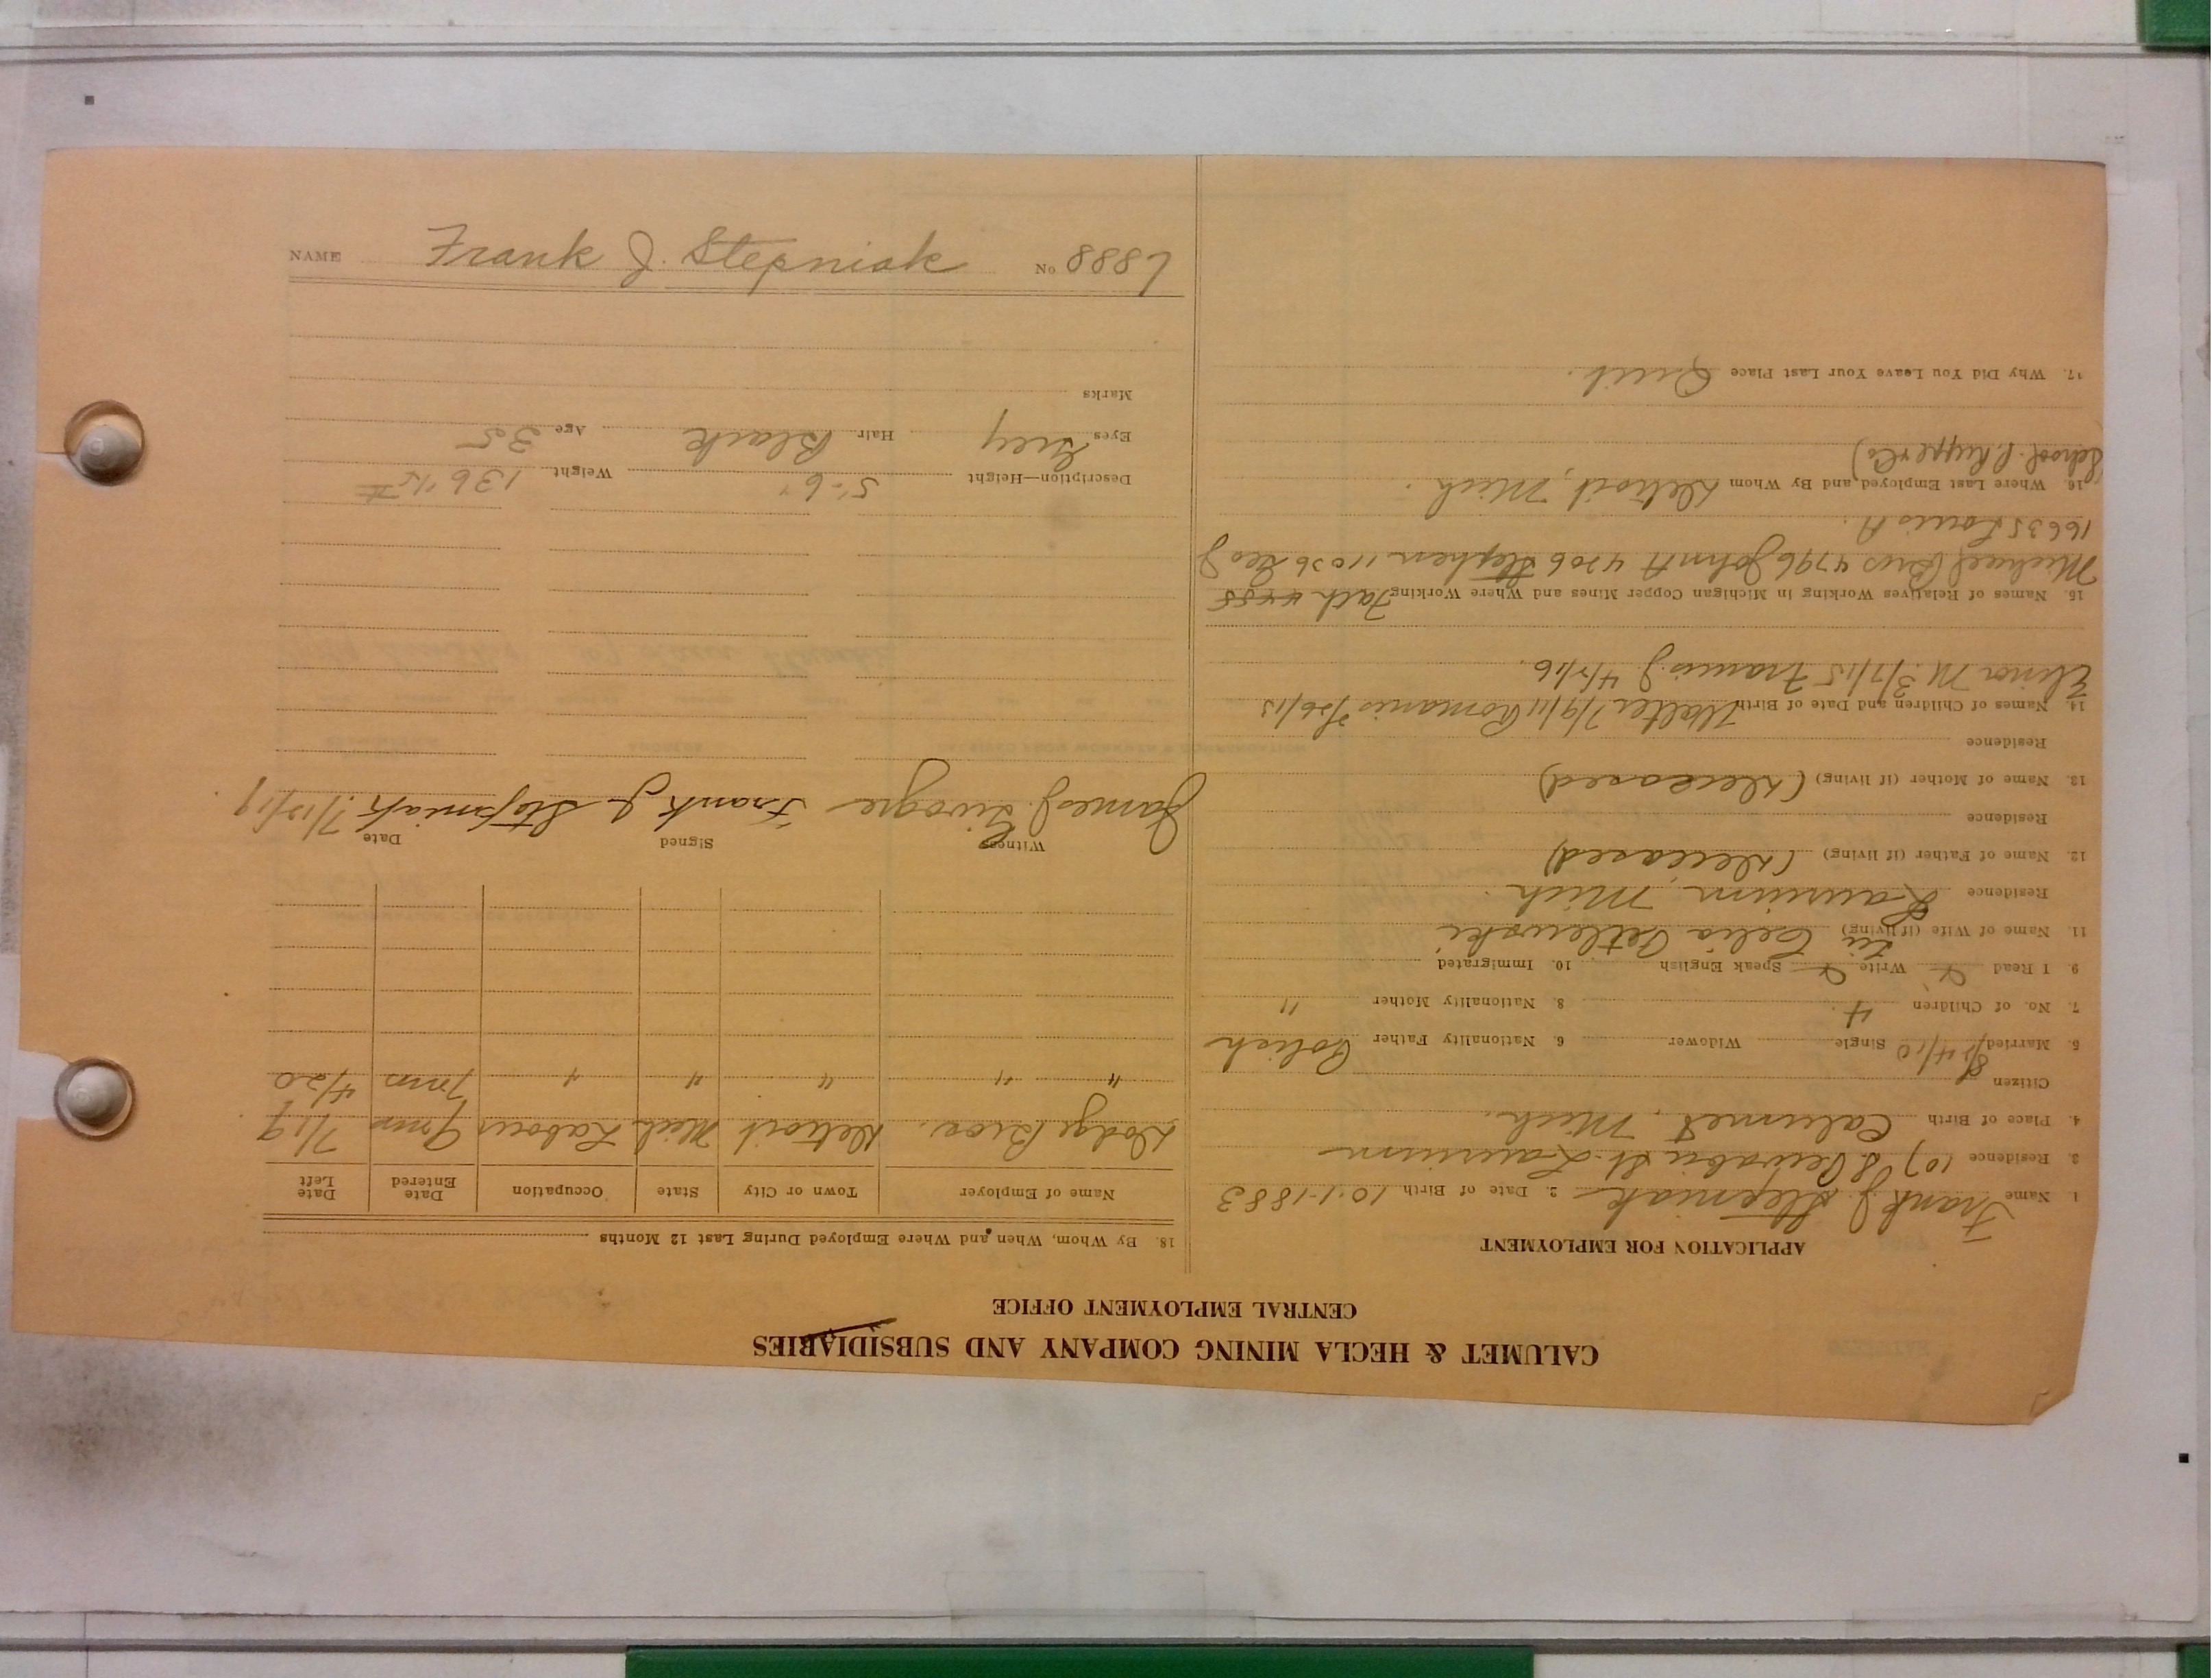 CALUMET & HECLA MINING COMPANY AND SUBSIDIARIES
CENTRAL EMPLOYMENT OFFICE
APPLICATION FOR EMPLOYMENT
1. Name Frank J Stepniak 2. Date of Birth 10-1-1883
3. Residence 107 S Pewabic St. Laurium
4. Place of Birth Calumet, Mich.
Citizen
5. Married 8/24/10 Single Widower 6. Nationality Father Polish
7. No. of Children 4. 8. Nationality Mother "
9. I Read Write Speak English 10. Immigrated
11. Name of Wife (if living) Celia
Residence Laurium, Mich.
12. Name of Father (if living) (Deceased)
Residence
13. Name of Mother (if living) (Deceased)
Residence
14. Names of Children and Date of Birth Walter 7/9/11 Romanis
Elinor M. 3/7/15 Francis J.
15. Names of Relatives Working in Michigan Copper Mines and Where Working
Michael Bros 4796 John A 4706 Stephen 11036 Leo J
16635 Louis A.
16. Where Last Employed and By Whom Detroit, Mich.
17. Why Did You Leave Your Last Place Quit.
18. By Whom, When and Where Employed During Last 12 Months
Name of Employer Town or City State Occupation Date Entered Date Left
Dodge Bros. Detroit Mich Laborer 9 mos 7/19
" " " " " 4/20
Witness Signed Date
James J. Frank J Stepniak 7/15/19
Description—Height 5'-6" Weight 136 1/2 #
Eyes Grey Hair Black Age 35
Marks
NAME Frank J. Stepniak No 8887